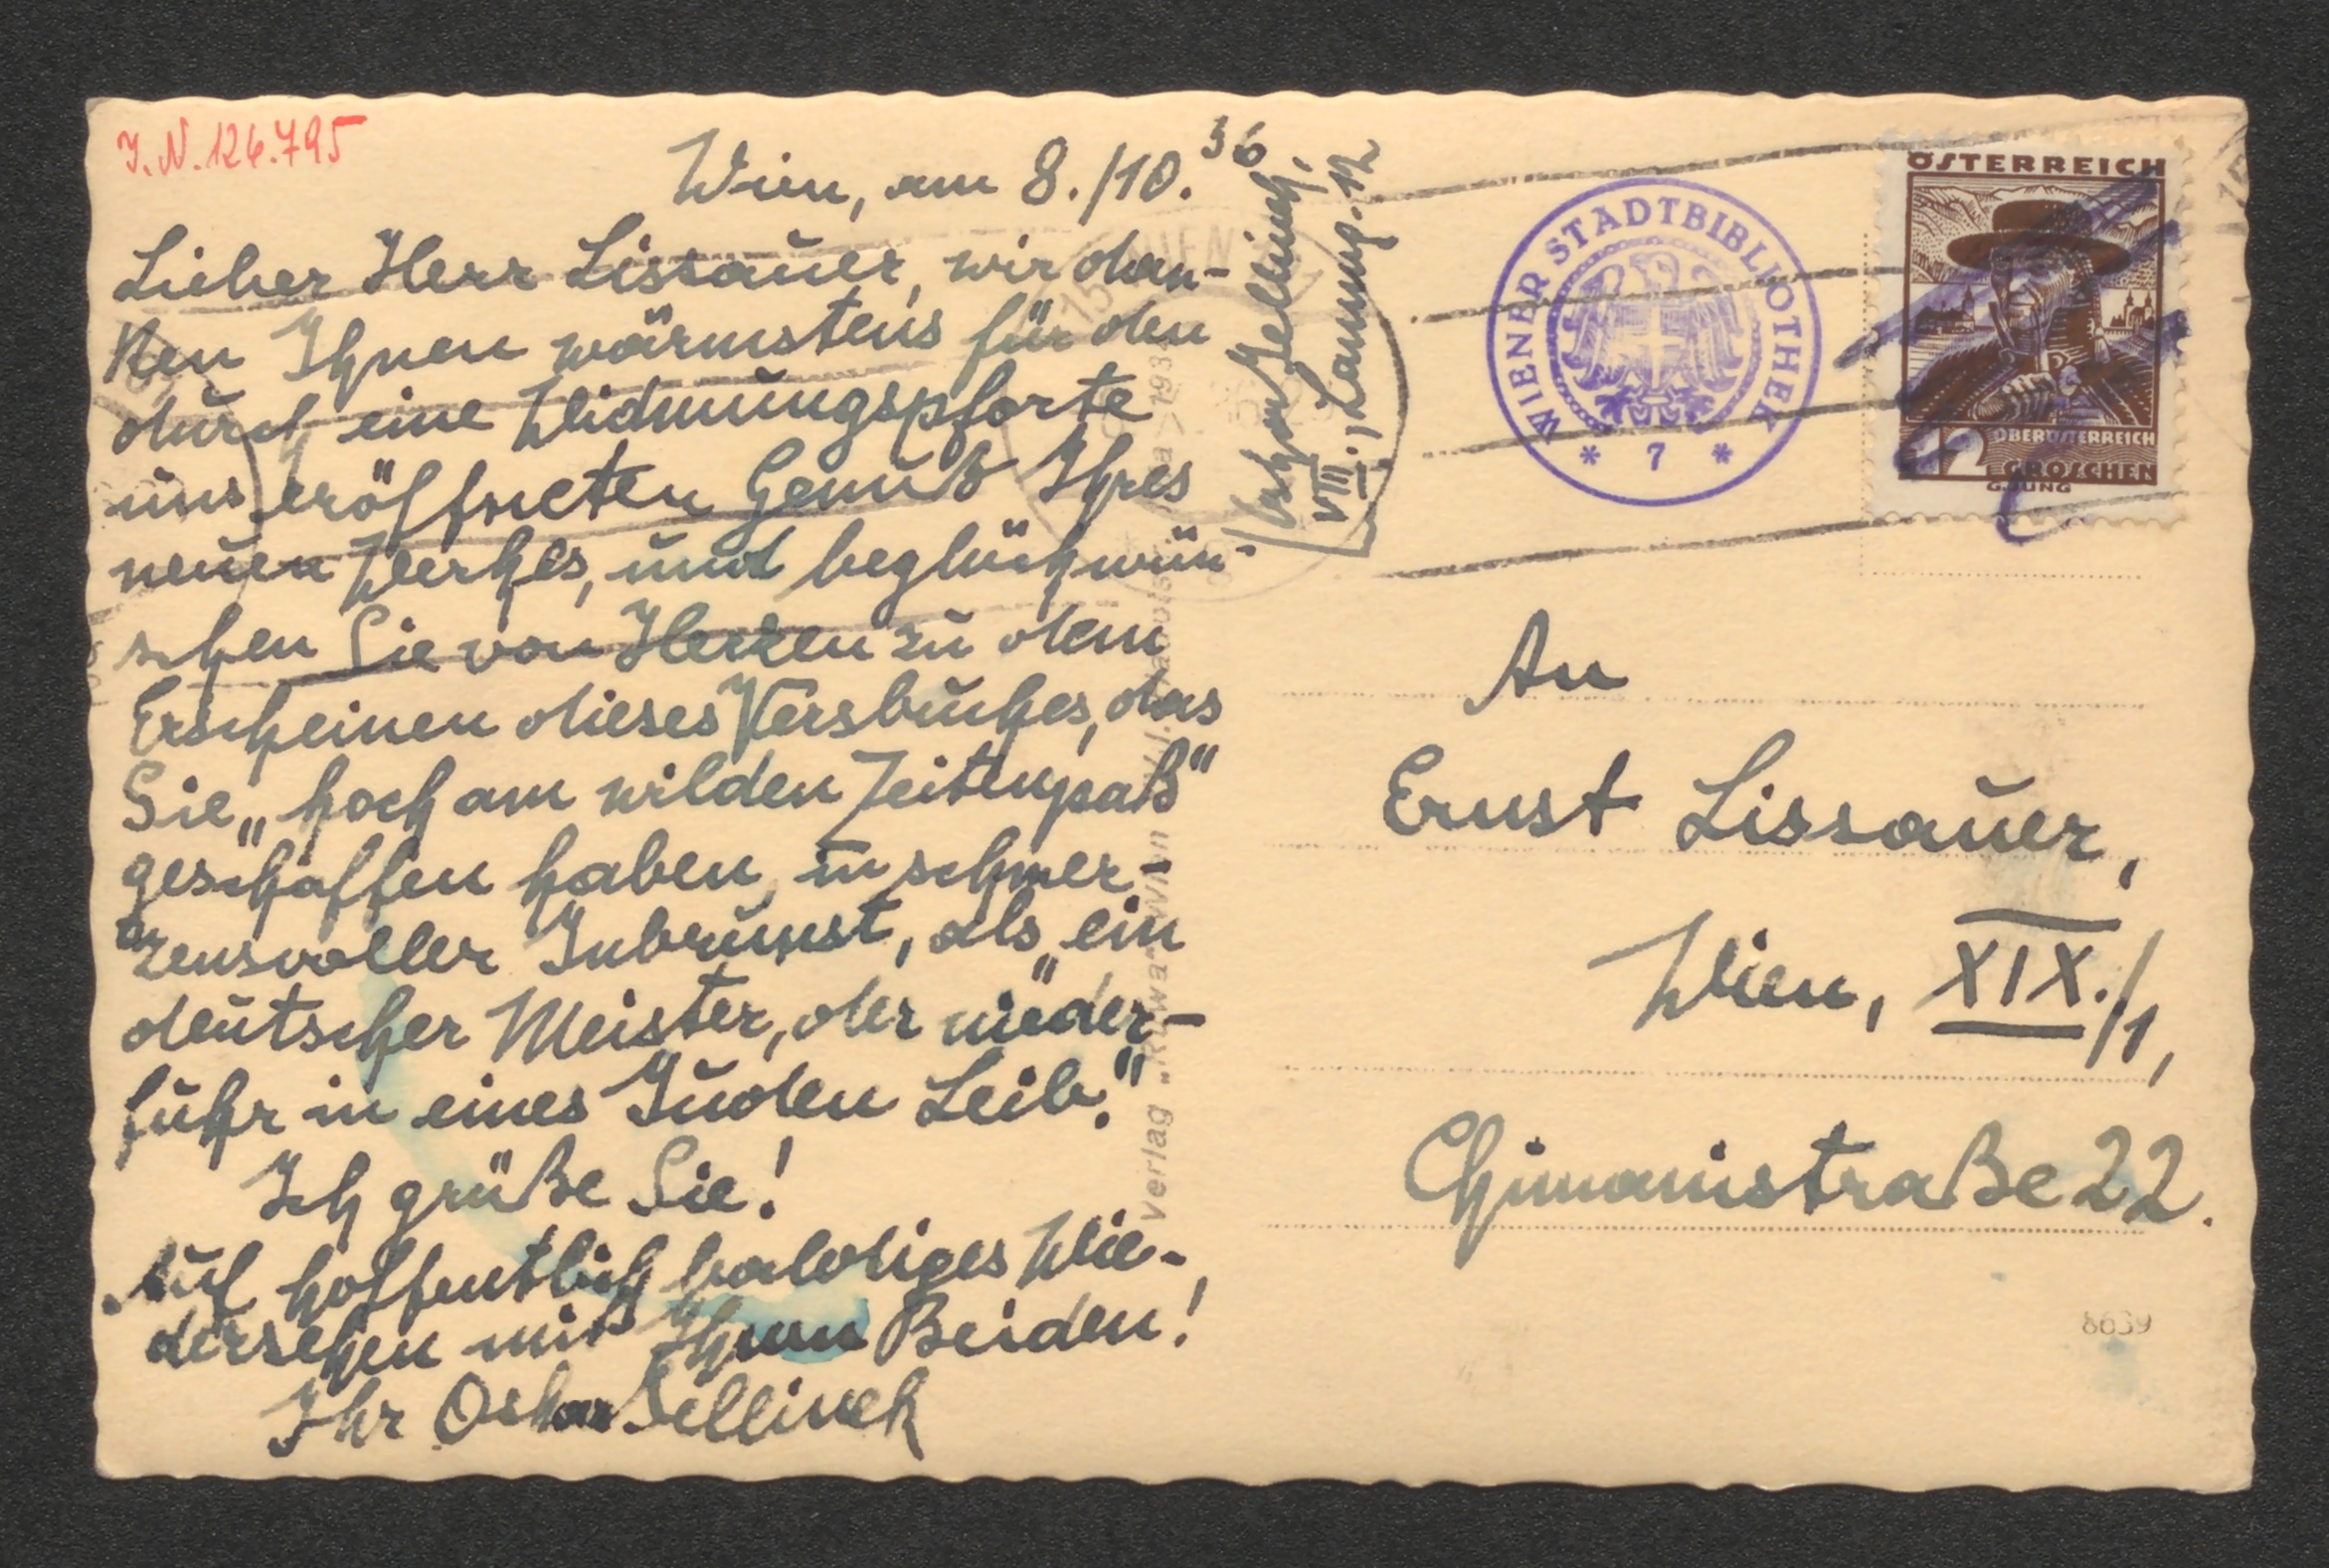 J.N. 126.795
Wien, am 8./10. 36
Lieber Herr Lissauer, wir dan-
ken Ihnen wärmstens für den
durch eine Widmungspforte
uns eröffneten Genuß Ihres
neuen Werkes, und beglückwün-
schen Sie von Herzen zu dem
Erscheinen dieses Versbuches, das
Sie „hoch am wilden Zeitenpaß"
geschaffen haben, in schmer-
zensvoller Inbrunst, als „ein
deutscher Meister, der nieder-
fuhr in eines Juden Leib."
Ich grüße Sie!
Auf hoffentlich baldiges Wie-
dersehen mit Ihnen Beiden!
Ihr Oskar Jellinek
Oskar Jellinek,
VIII., Lammg. 12
WIENER STADTBIBLIOTHEK
* 7 *
ÖSTERREICH
OBERÖSTERREICH
12 GROSCHEN
G. JUNG
An
Ernst Lissauer,
Wien, XIX./1,
Chimanistraße 22.
8639